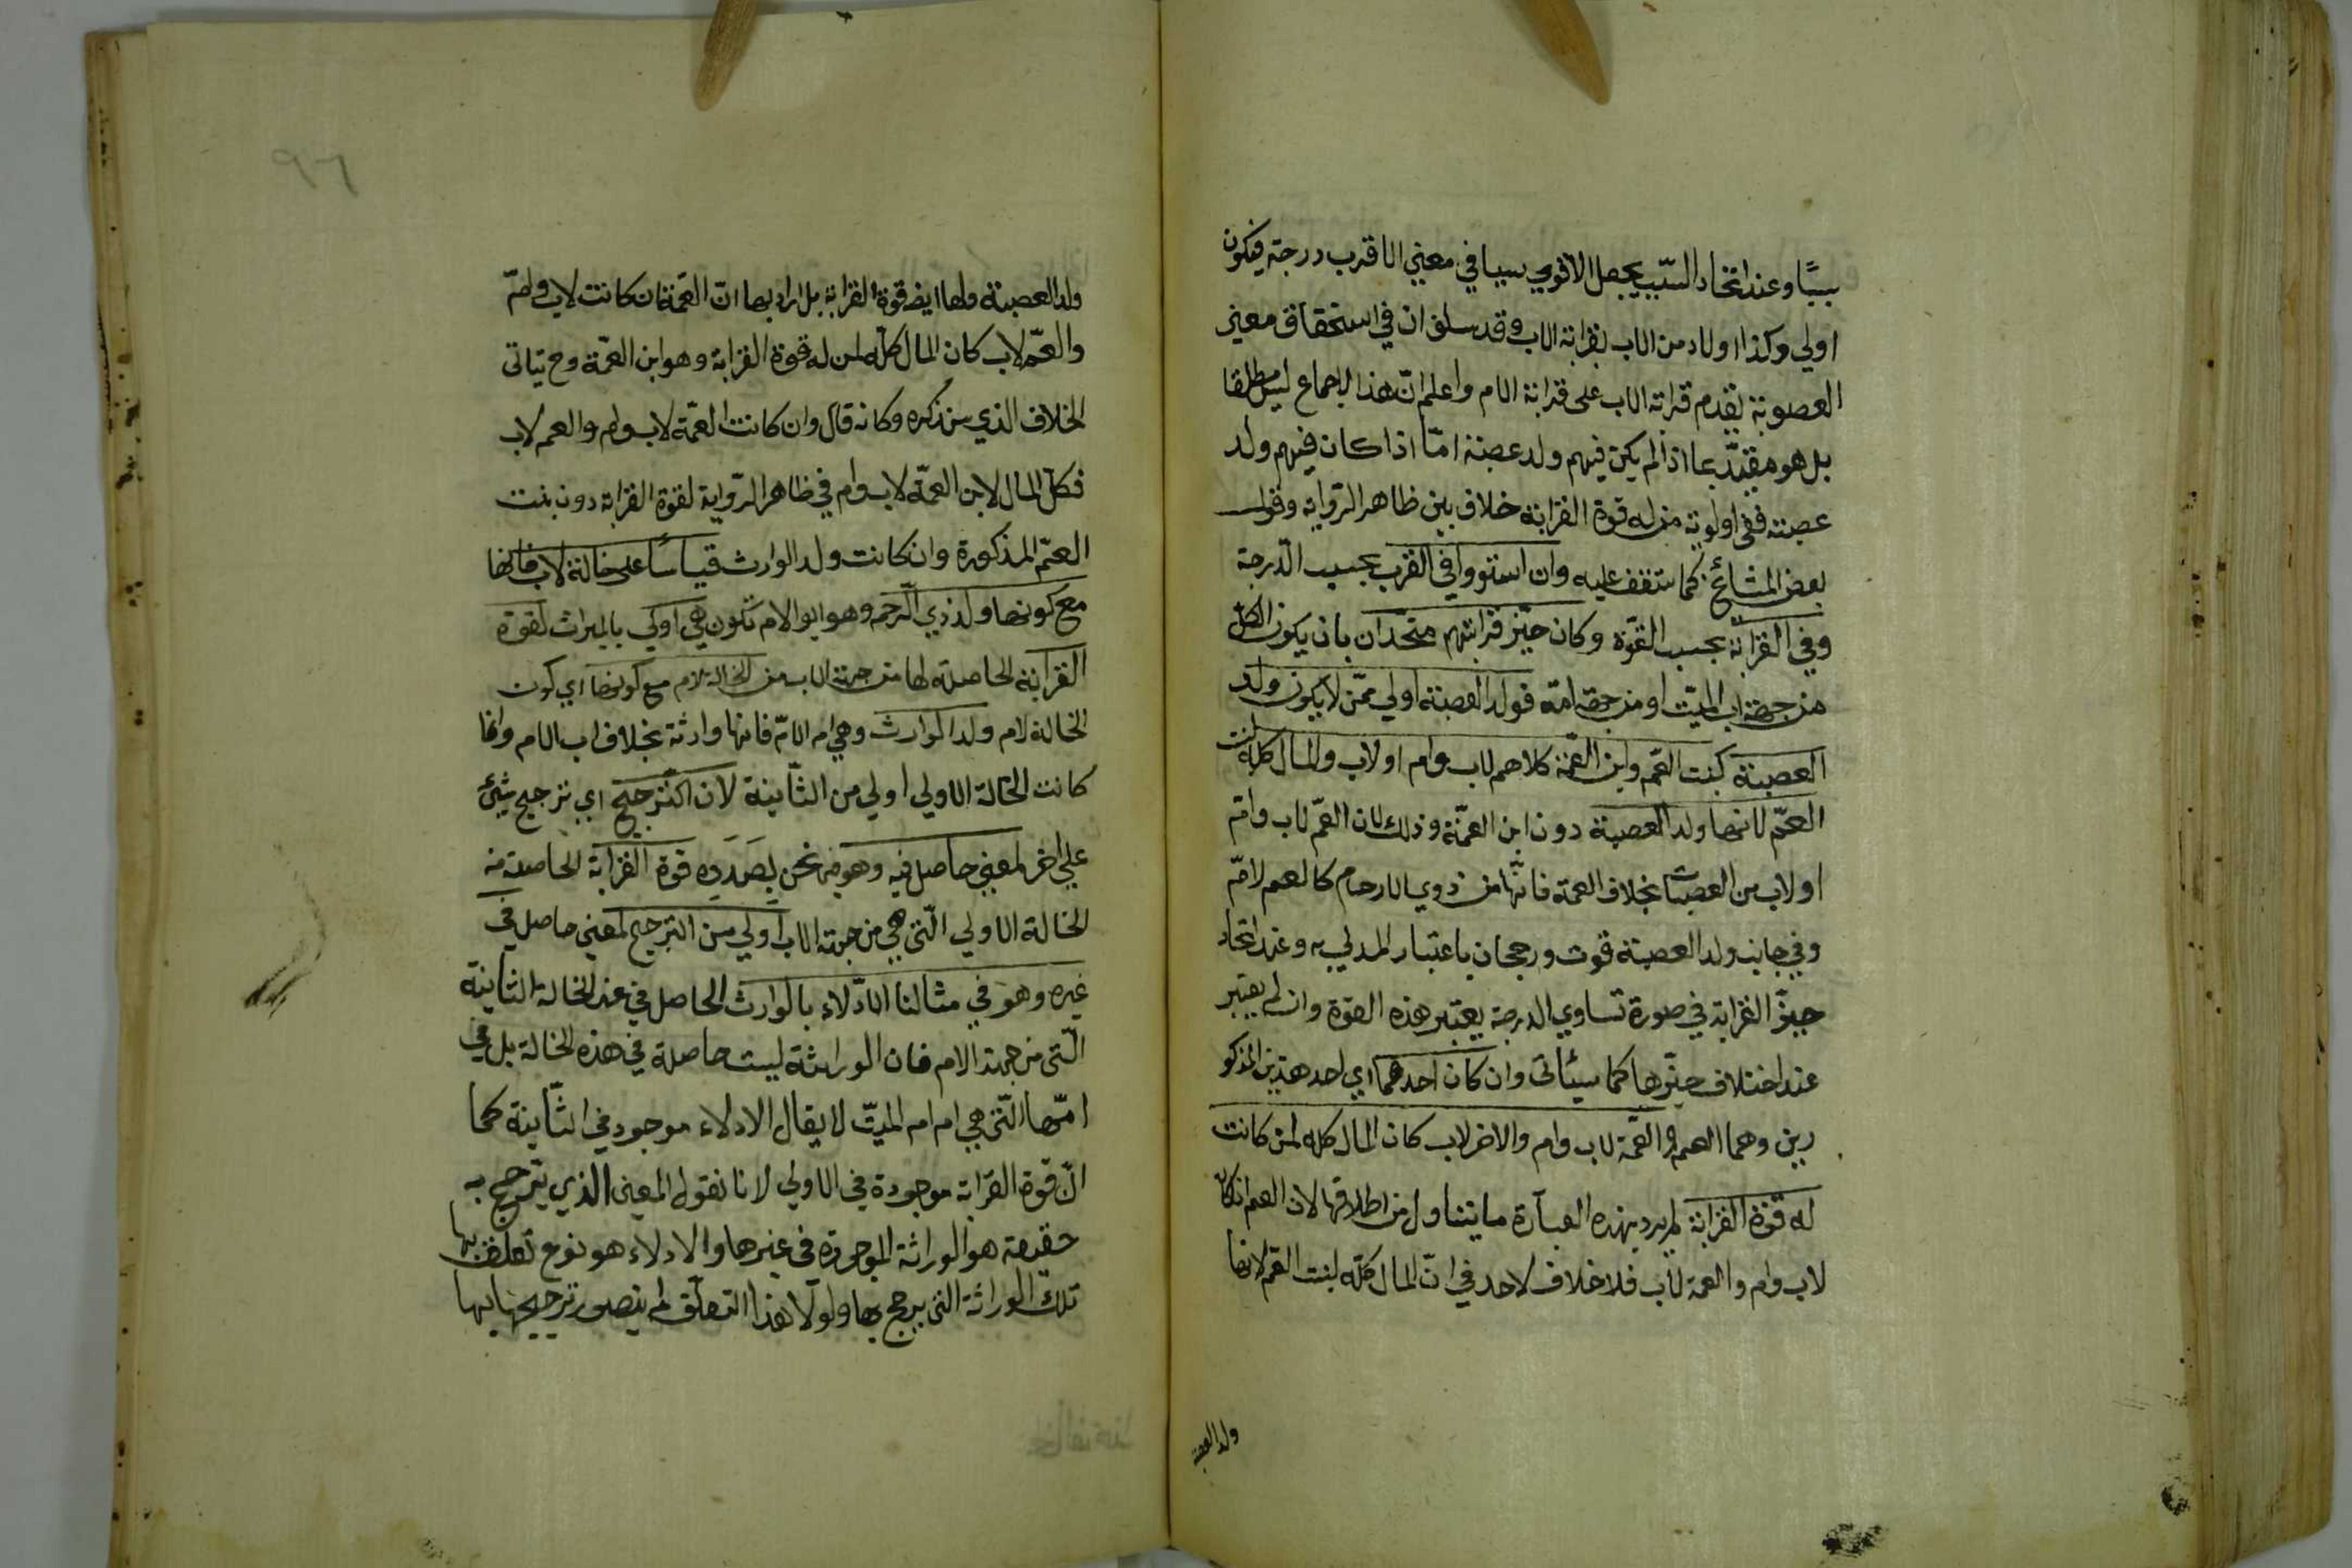 سببًا وعند اتحاد السّبب يجعل الاقوي سببا في معني الاقرب درجة فيكون
اولي وكذا اولاد من الاب بقرابة الاب وقد سلف ان في استحقاق معني
العصوبة يقدم قرابة الاب على قرابة الام واعلم انّ هذا الاجماع ليس مطلقا
بل هو مقيّد بما اذا لم يكن فيهم ولد عصبة امّا اذا كان فيهم ولد
عصبته ففي اولوية من له قوة القرابة خلاف بين ظاهر الرّواية وقول
بعض المشائخ كما ستقف عليه وان استووا في القرب بحسب الدّرجة
وفي القرابة بحسب القوّة وكان حيّز قرابتهم متحدان بان يكون الكل
من جهة اب الميّت او من جهة امّه فولد العصبة اولي ممّن لا يكون ولد
العصبة كبنت العّم وابن العمّة كلاهم لاب وام او لاب والمال كله لبنت
العمّ لانها ولد العصبة دون ابن العمّة وذلك لان العمّ لاب وامّ
او لاب من العصبات بخلاف العمة فانّها من ذوي الارحام كالعم لامّ
وفي جانب ولد العصبة قوت ورجحان باعتبار المدلي به وعند اتحاد
حيزّ القرابة في صورة تساوي الدرجة يعتبر هذه القوة وان لم يعتبر
عند اختلاف حيّزها كما سيئاتى وان كان احدهما اي احد هذين المذكو
رين وهما العم والعمّة لاب وام والاخر لاب كان المال كله لمن كانت
له قوّة القرابة لم يرد بهذه العبارة ما يتناول من اطلاقها لان العم ان كان
لاب وام والعمة لاب فلا خلاف لاحد في انّ المال كلّه لبنت العمّ لانها
ولد العصبة
٩٦
ولد العصبة ولها ايضا قوة القرابة بل اراد بها انّ العمّة ان كانت لاب وامّ
والعمّ لاب كان المال كلّه لمن له قوة القرابة وهو ابن العمّة وح يتاتى
الخلاف الذي سنذكره وكانه قال وان كانت العمّة لاب وام والعم لاب
فكلّ المال لابن العمّة لاب وام في ظاهر الرّواية لقوة القرابة دون بنت
العمّ المذكورة وان كانت ولد الوارث قياسًا على خالة لاب فانها
مع كونها ولد ذي الرّحم وهو ابو الام تكون هي اولي بالميراث لقوة
القرابة الحاصلة لها من جهة الاب من الخالة لام مع كونها اي كون
الخالة لام ولد الوارث وهي ام الامّ فانها وارثة بخلاف اب الام وانما
كانت الخالة الاولي اولي من الثّانية لان الترجيح اي ترجيح شيئ
علي اخر لمعني حاصل فيه وهو فيما نحن بصدده قوة القرابة الحاصلة من
الخالة الاولي الّتي هي من جهة الاب اولي من الترجيح لمعني حاصل في
غيره وهو في مثالنا الادّلاء بالوارث الحاصل في عند الخالة الثانية
الّتى من جهة الام فان الوراثة ليست حاصلة في هذه الخالة بل في
امّها الّتي هي ام ام الميّت لا يقال الادلاء موجود في الثّانية كما
انّ قوّة القرابة موجودة في الاولي لانا نقول المعنى الذي يترجح به
حقيقة هو الوراثة الموجودة في غيرها والادلاء هو نوع تعلق بها
تلك الوراثة التى يرجح بها ولولا هذا التعلّق لم يتصور ترجيحها بها